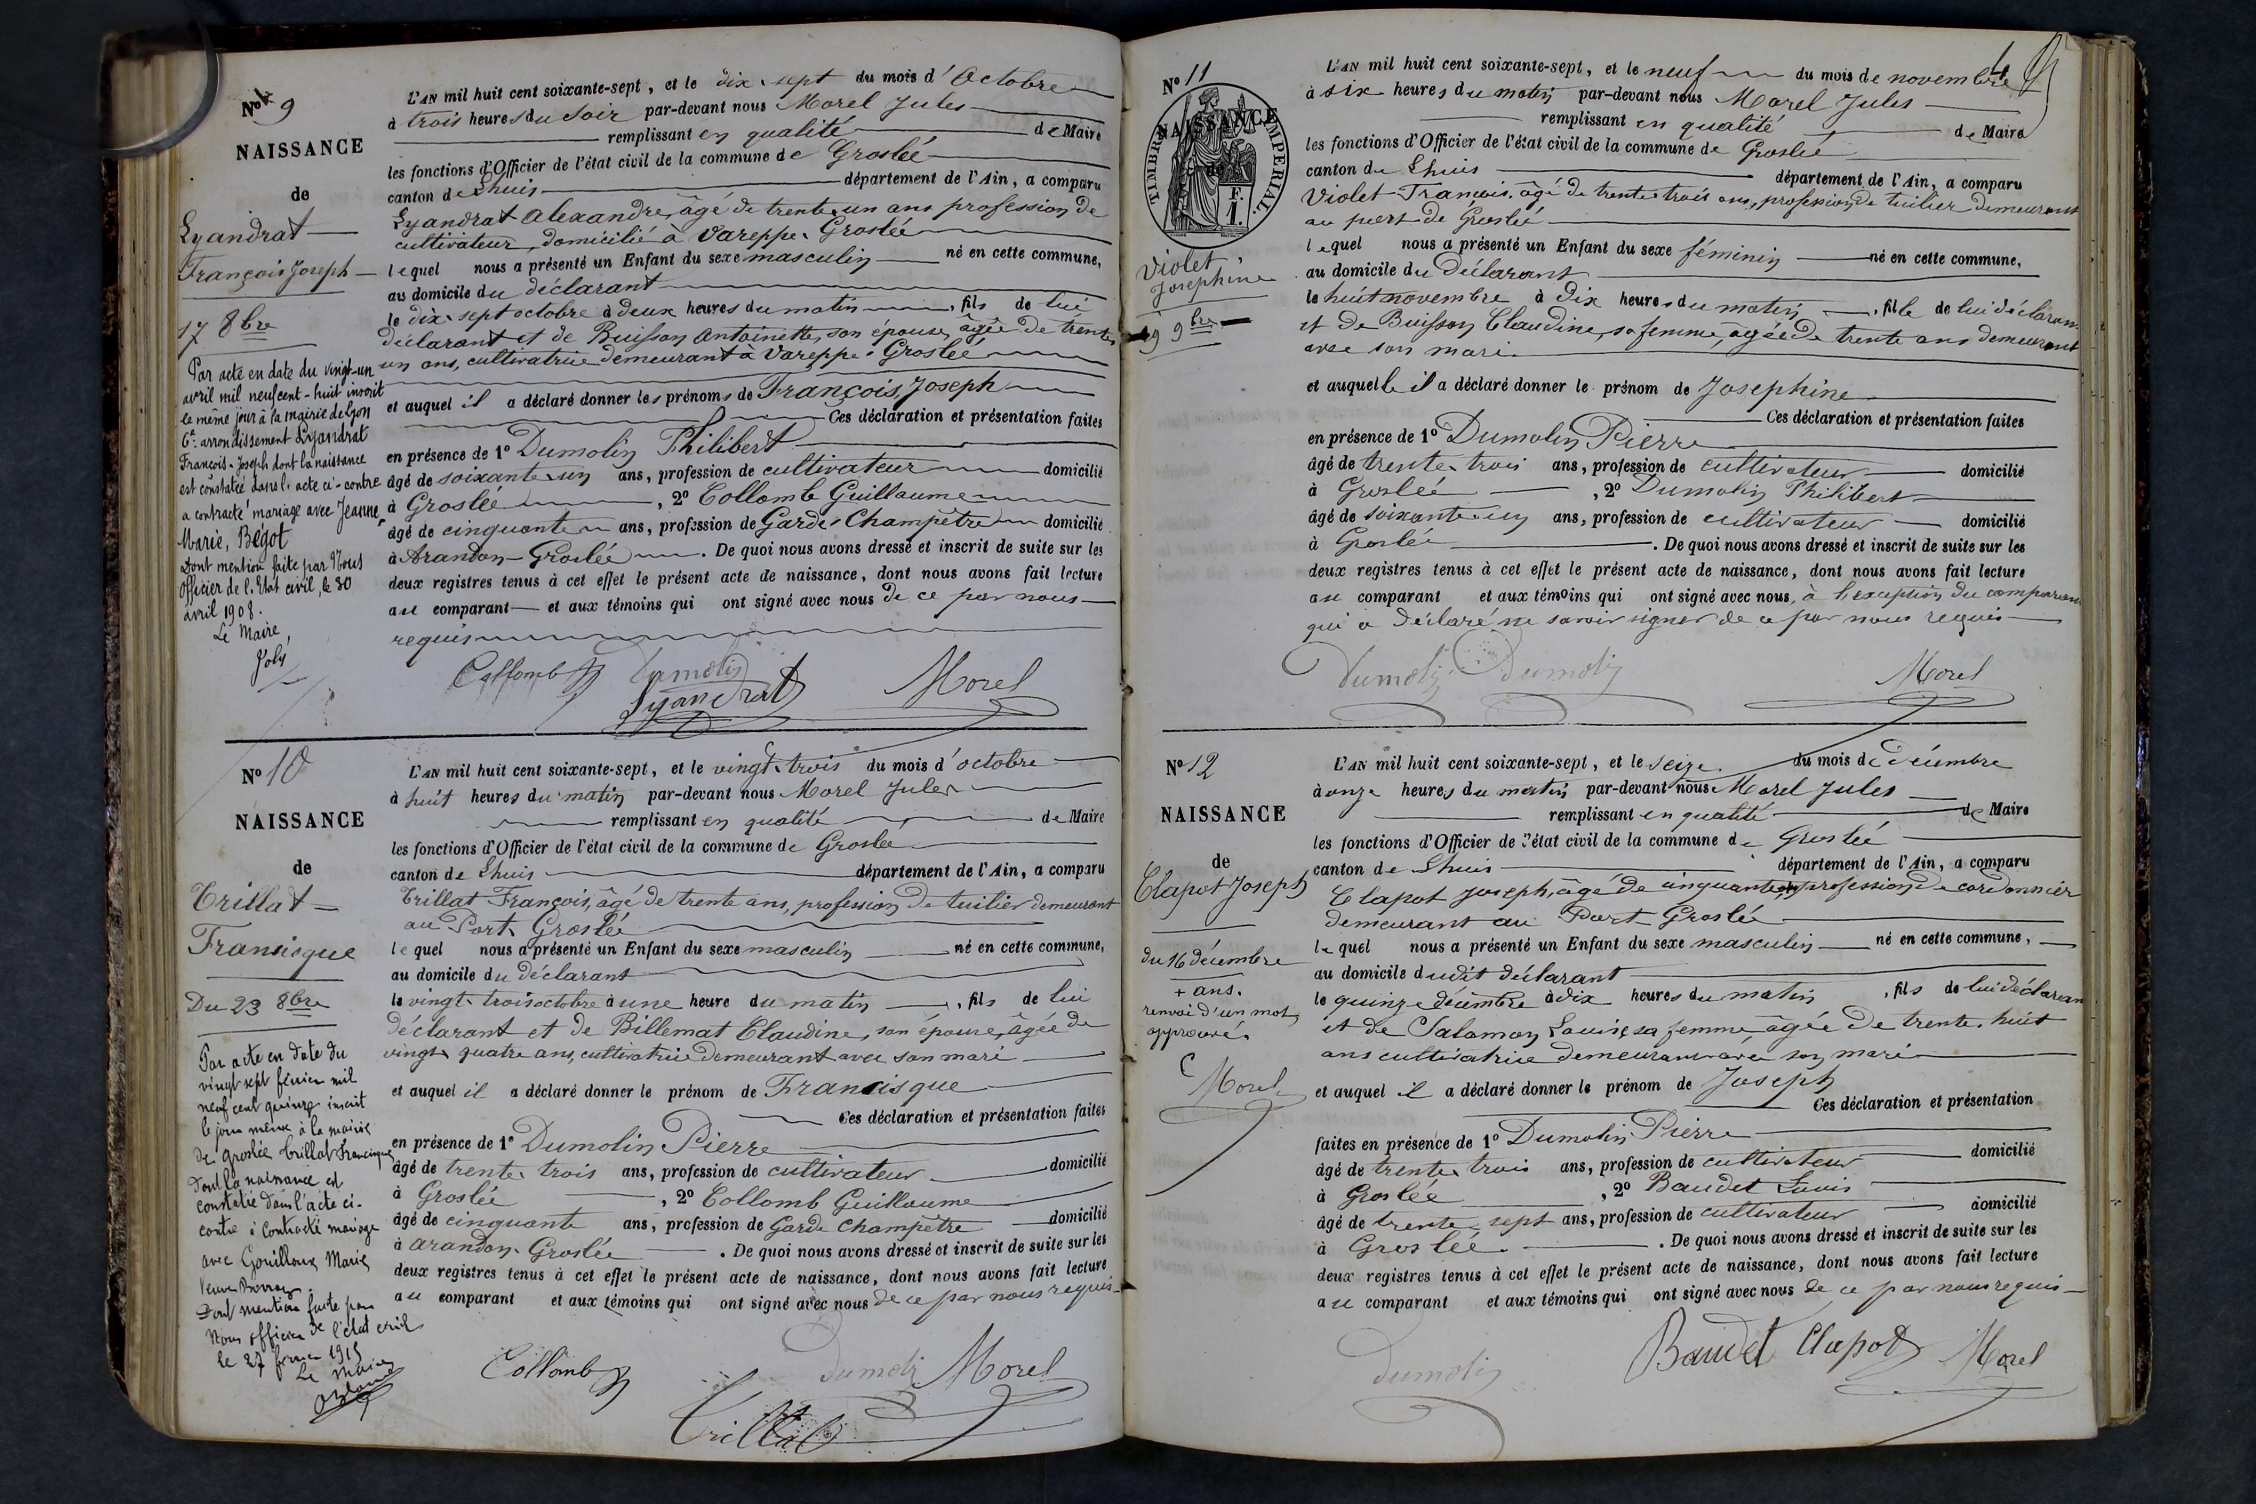 No 9
NAISSANCE
de
Lyandrat
François Joseph
17 8bre
Par acte en date du vingt-un
avril mil neuf cent-huit inscrit
le même jour à la mairie de Lyon
6e arrondissement Lyandrat
François-Joseph dont la naissance
est constatée dans l'acte ci-contre
a contracté mariage avec Jeanne,
Marie, Bégot
Dont mention faite par Nous
Officier de l'Etat civil, le 30
avril 1908.
Le Maire,
Joly
L'AN mil huit cent soixante-sept, et le dix-sept du mois d'Octobre
à trois heures du soir par-devant nous Morel Jules
remplissant en qualité de Maire
les fonctions d'Officier de l'état civil de la commune de Groslée
canton de Lhuis département de l'Ain, a comparu
Lyandrat Alexandre, âgé de trente-un ans profession de
cultivateur, domicilié à Vareppe-Groslée
lequel nous a présenté un Enfant du sexe masculin né en cette commune,
au domicile du déclarant
le dix-sept octobre à deux heures du matin, fils de lui
déclarant et de Buisson Antoinette, son épouse, âgée de trente
un ans, cultivatrice demeurant à Vareppe-Groslée
et auquel il a déclaré donner les prénoms de François, Joseph
Ces déclaration et présentation faites
en présence de 1o Dumolin Philibert
âgé de soixante-un ans, profession de cultivateur domicilié
à Groslée, 2o Collomb Guillaume
âgé de cinquante ans, profession de Garde-Champêtre domicilié
à Arandon-Groslée. De quoi nous avons dressé et inscrit de suite sur les
deux registres tenus à cet effet le présent acte de naissance, dont nous avons fait lecture
au comparant et aux témoins qui ont signé avec nous de ce par nous
requis
Collomb Dumolin Morel
Lyandrat
No 10
NAISSANCE
de
Trillat
Francisque
Du 23 8bre
Par acte en date du
vingt sept février mil
neuf cent quinze inscrit
le jour même à la mairie
de Groslée Trillat Francisque
dont la naissance est
constatée dans l'acte ci-
contre a contracté mariage
avec Gouilloux Marie
Veuve
Dont mention faite par
Nous officier de l'état civil
le 27 février 1915
Le Maire
L'AN mil huit cent soixante-sept, et le vingt-trois du mois d'octobre
à huit heures du matin par-devant nous Morel Jules
remplissant en qualité de Maire
les fonctions d'Officier de l'état civil de la commune de Groslée
canton de Lhuis département de l'Ain, a comparu
Trillat François, âgé de trente ans, profession de tuilier demeurant
au Port Groslée
lequel nous a présenté un Enfant du sexe masculin né en cette commune,
au domicile du déclarant
le vingt-trois octobre à une heure du matin, fils de lui
déclarant et de Billemat Claudine, son épouse, âgée de
vingt-quatre ans, cultivatrice demeurant avec son mari
et auquel il a déclaré donner le prénom de Francisque
Ces déclaration et présentation faites
en présence de 1o Dumolin Pierre
âgé de trente-trois ans, profession de cultivateur domicilié
à Groslée, 2o Collomb Guillaume
âgé de cinquante ans, profession de Garde Champêtre domicilié
à Arandon-Groslée. De quoi nous avons dressé et inscrit de suite sur les
deux registres tenus à cet effet le présent acte de naissance, dont nous avons fait lecture
au comparant et aux témoins qui ont signé avec nous de ce par nous requis
Collomb Dumolin Morel
Trillat
No 11
NAISSANCE
TIMBRE IMPERIAL
F. 1.
Violet
Josephine
9 9bre
L'AN mil huit cent soixante-sept, et le neuf du mois de novembre
à six heures du matin par-devant nous Morel Jules
remplissant en qualité de Maire
les fonctions d'Officier de l'état civil de la commune de Groslée
canton de Lhuis département de l'Ain, a comparu
Violet François, âgé de trente-trois ans, profession de tuilier demeurant
au port de Groslée
lequel nous a présenté un Enfant du sexe féminin né en cette commune,
au domicile du déclarant
le huit novembre à dix heures du matin, fille de lui déclarant
et de Buisson Claudine, sa femme, âgée de trente ans demeurant
avec son mari
et auquelle il a déclaré donner le prénom de Josephine
Ces déclaration et présentation faites
en présence de 1o Dumolin Pierre
âgé de trente-trois ans, profession de cultivateur domicilié
à Groslée, 2o Dumolin Philibert
âgé de soixante-un ans, profession de cultivateur domicilié
à Groslée. De quoi nous avons dressé et inscrit de suite sur les
deux registres tenus à cet effet le présent acte de naissance, dont nous avons fait lecture
au comparant et aux témoins qui ont signé avec nous, à l'exception du comparant
qui a déclaré ne savoir signer de ce par nous requis
Dumolin Dumolin Morel
No 12
NAISSANCE
de
Clapot Joseph
du 16 décembre
+ ans.
renvoi d'un mot
approuvé.
Morel
L'AN mil huit cent soixante-sept, et le seize du mois de décembre
à onze heures du matin par-devant nous Morel Jules
remplissant en qualité de Maire
les fonctions d'Officier de l'état civil de la commune de Groslée
canton de Lhuis département de l'Ain, a comparu
Clapot Joseph, âgé de cinquante, profession de cordonnier
demeurant au Port Groslée
lequel nous a présenté un Enfant du sexe masculin né en cette commune,
au domicile dudit déclarant
le quinze décembre à dix heures du matin, fils de lui déclarant
et de Salomon Louise, sa femme, âgée de trente-huit
ans cultivatrice demeurant avec son mari
et auquel il a déclaré donner le prénom de Joseph
Ces déclaration et présentation
faites en présence de 1o Dumolin Pierre
âgé de trente-trois ans, profession de cultivateur domicilié
à Groslée, 2o Baudet Louis
âgé de trente-sept ans, profession de cultivateur domicilié
à Groslée. De quoi nous avons dressé et inscrit de suite sur les
deux registres tenus à cet effet le présent acte de naissance, dont nous avons fait lecture
au comparant et aux témoins qui ont signé avec nous de ce par nous requis
Dumolin Baudet Clapot Morel